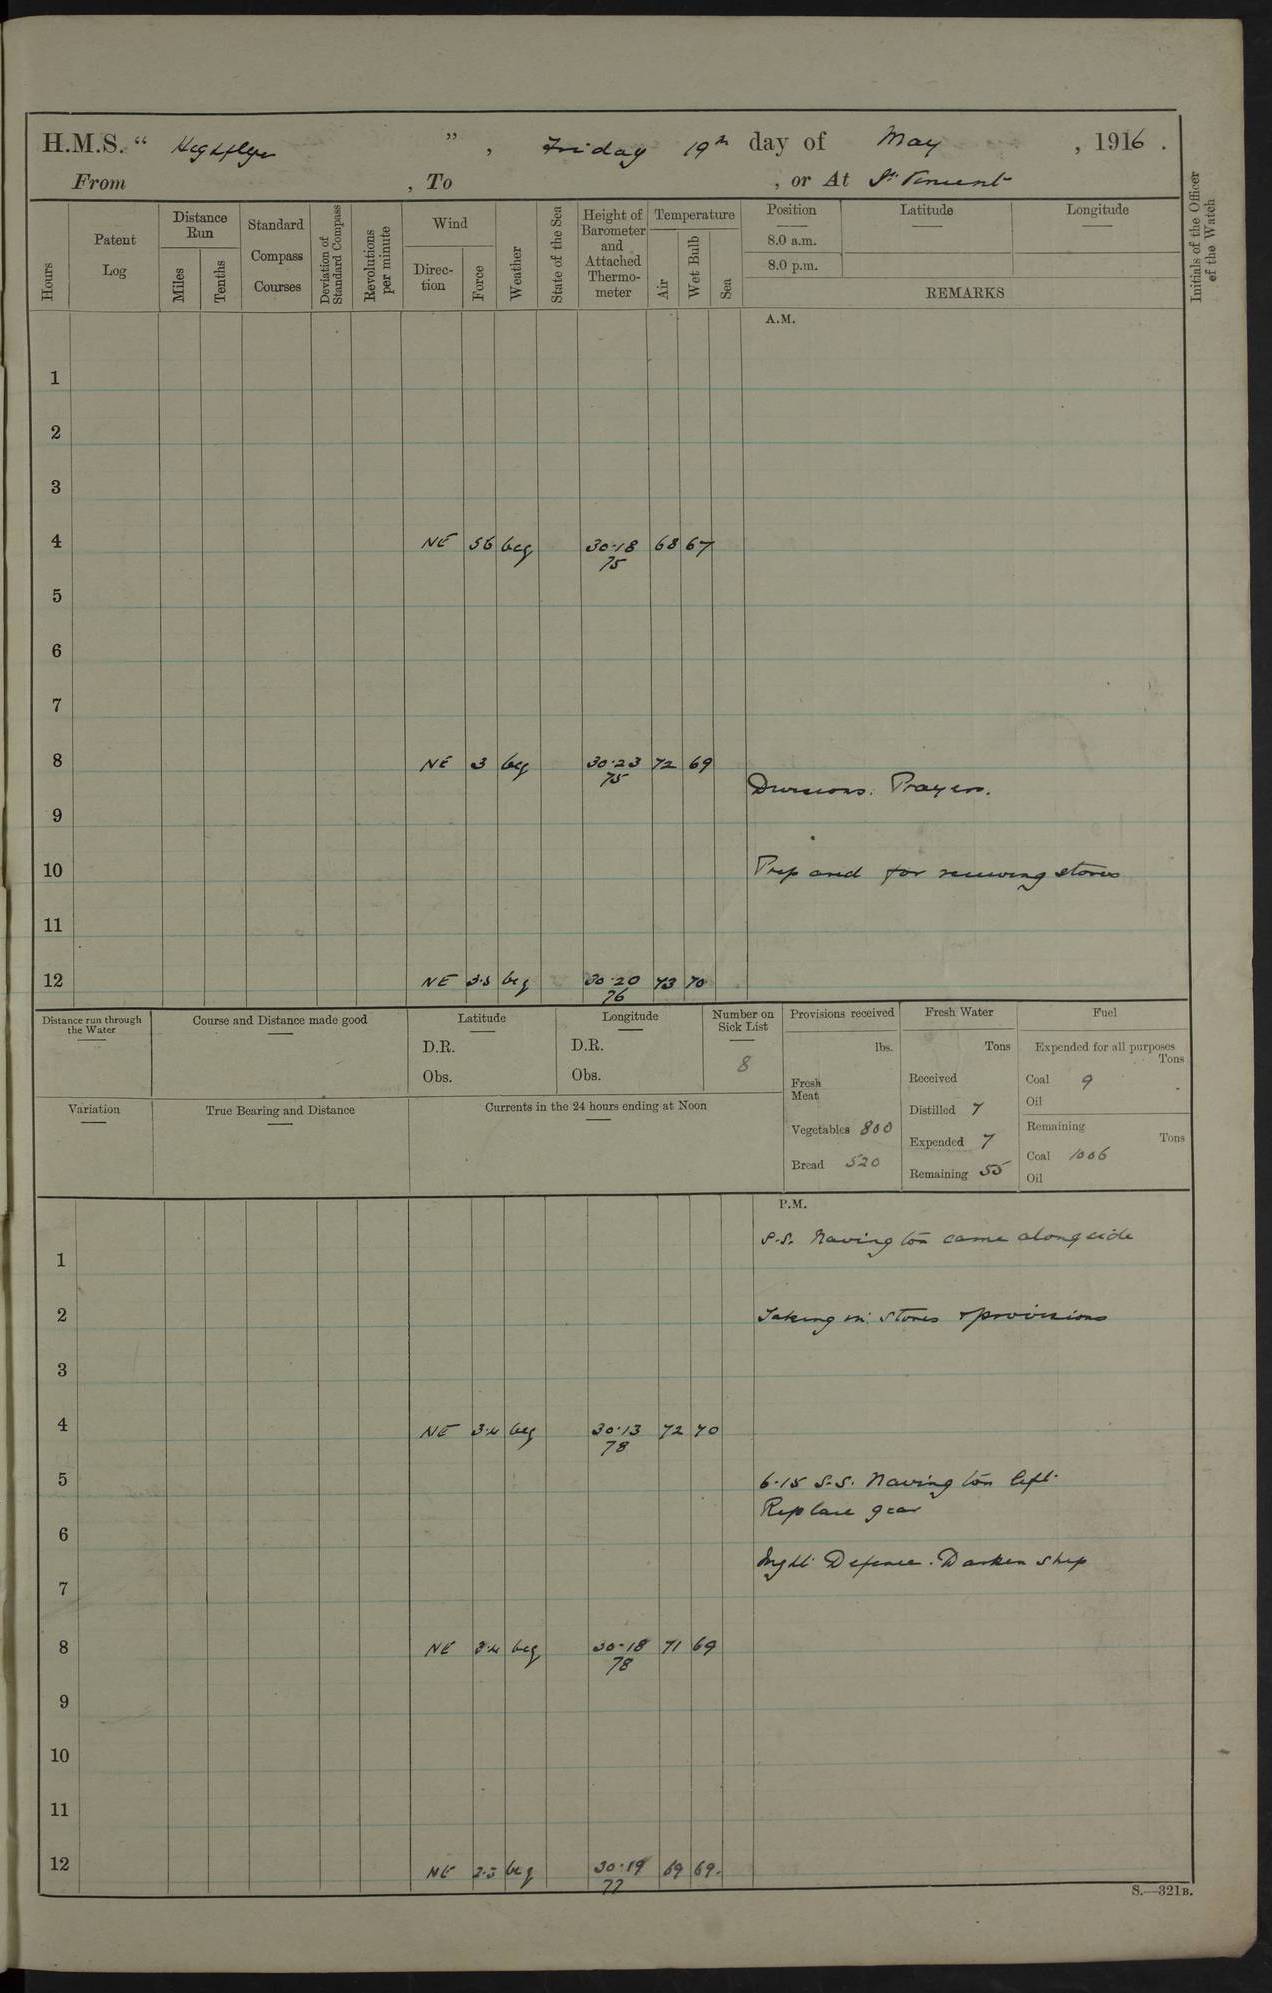 H.M.S. " Highflyer " , Friday 19th day of May , 1916 .
From , To , or At St Vincent
Hours
Patent Log
Distance Run
Miles
Tenths
Standard Compass Courses
Deviation of Standard Compass
Revolutions per minute
Wind
Direction
Force
Weather
State of the Sea
Height of Barometer and Attached Thermometer
Temperature
Air
Wet Bulb
Sea
Position
8.0 a.m.
8.0 p.m.
Latitude
Longitude
REMARKS
Initials of the Officer of the Watch
A.M.
1
2
3
4 NE 56 bcq 30.18 68 67
75
5
6
7
8 NE 3 bcq 30.23 72 69
75
Divisions. Prayers.
9
10 Prepared for receiving stores
11
12 NE bcq 30.20 73 70
76
Distance run through the Water
Course and Distance made good
Latitude
D.R.
Obs.
Longitude
D.R.
Obs.
Number on Sick List
8
Variation
True Bearing and Distance
Currents in the 24 hours ending at Noon
Provisions received
lbs.
Fresh Meat
Vegetables 800
Bread 520
Fresh Water
Tons
Received
Distilled 7
Expended 7
Remaining 55
Fuel
Expended for all purposes
Tons
Coal 9
Oil
Remaining
Tons
Coal 1006
Oil
P.M.
S.S. Navington came alongside
1
2 Taking in stores & provisions
3
4 NE 3.4 bcq 30.13 72 70
78
5 6.15 S.S. Navington left
Replace gear
6
Night Defence. Darken ship
7
8 NE 3.4 bcq 30.18 71 69
78
9
10
11
12 NE 2.3 bcq 30.19 69 69.
77
S.—321B.